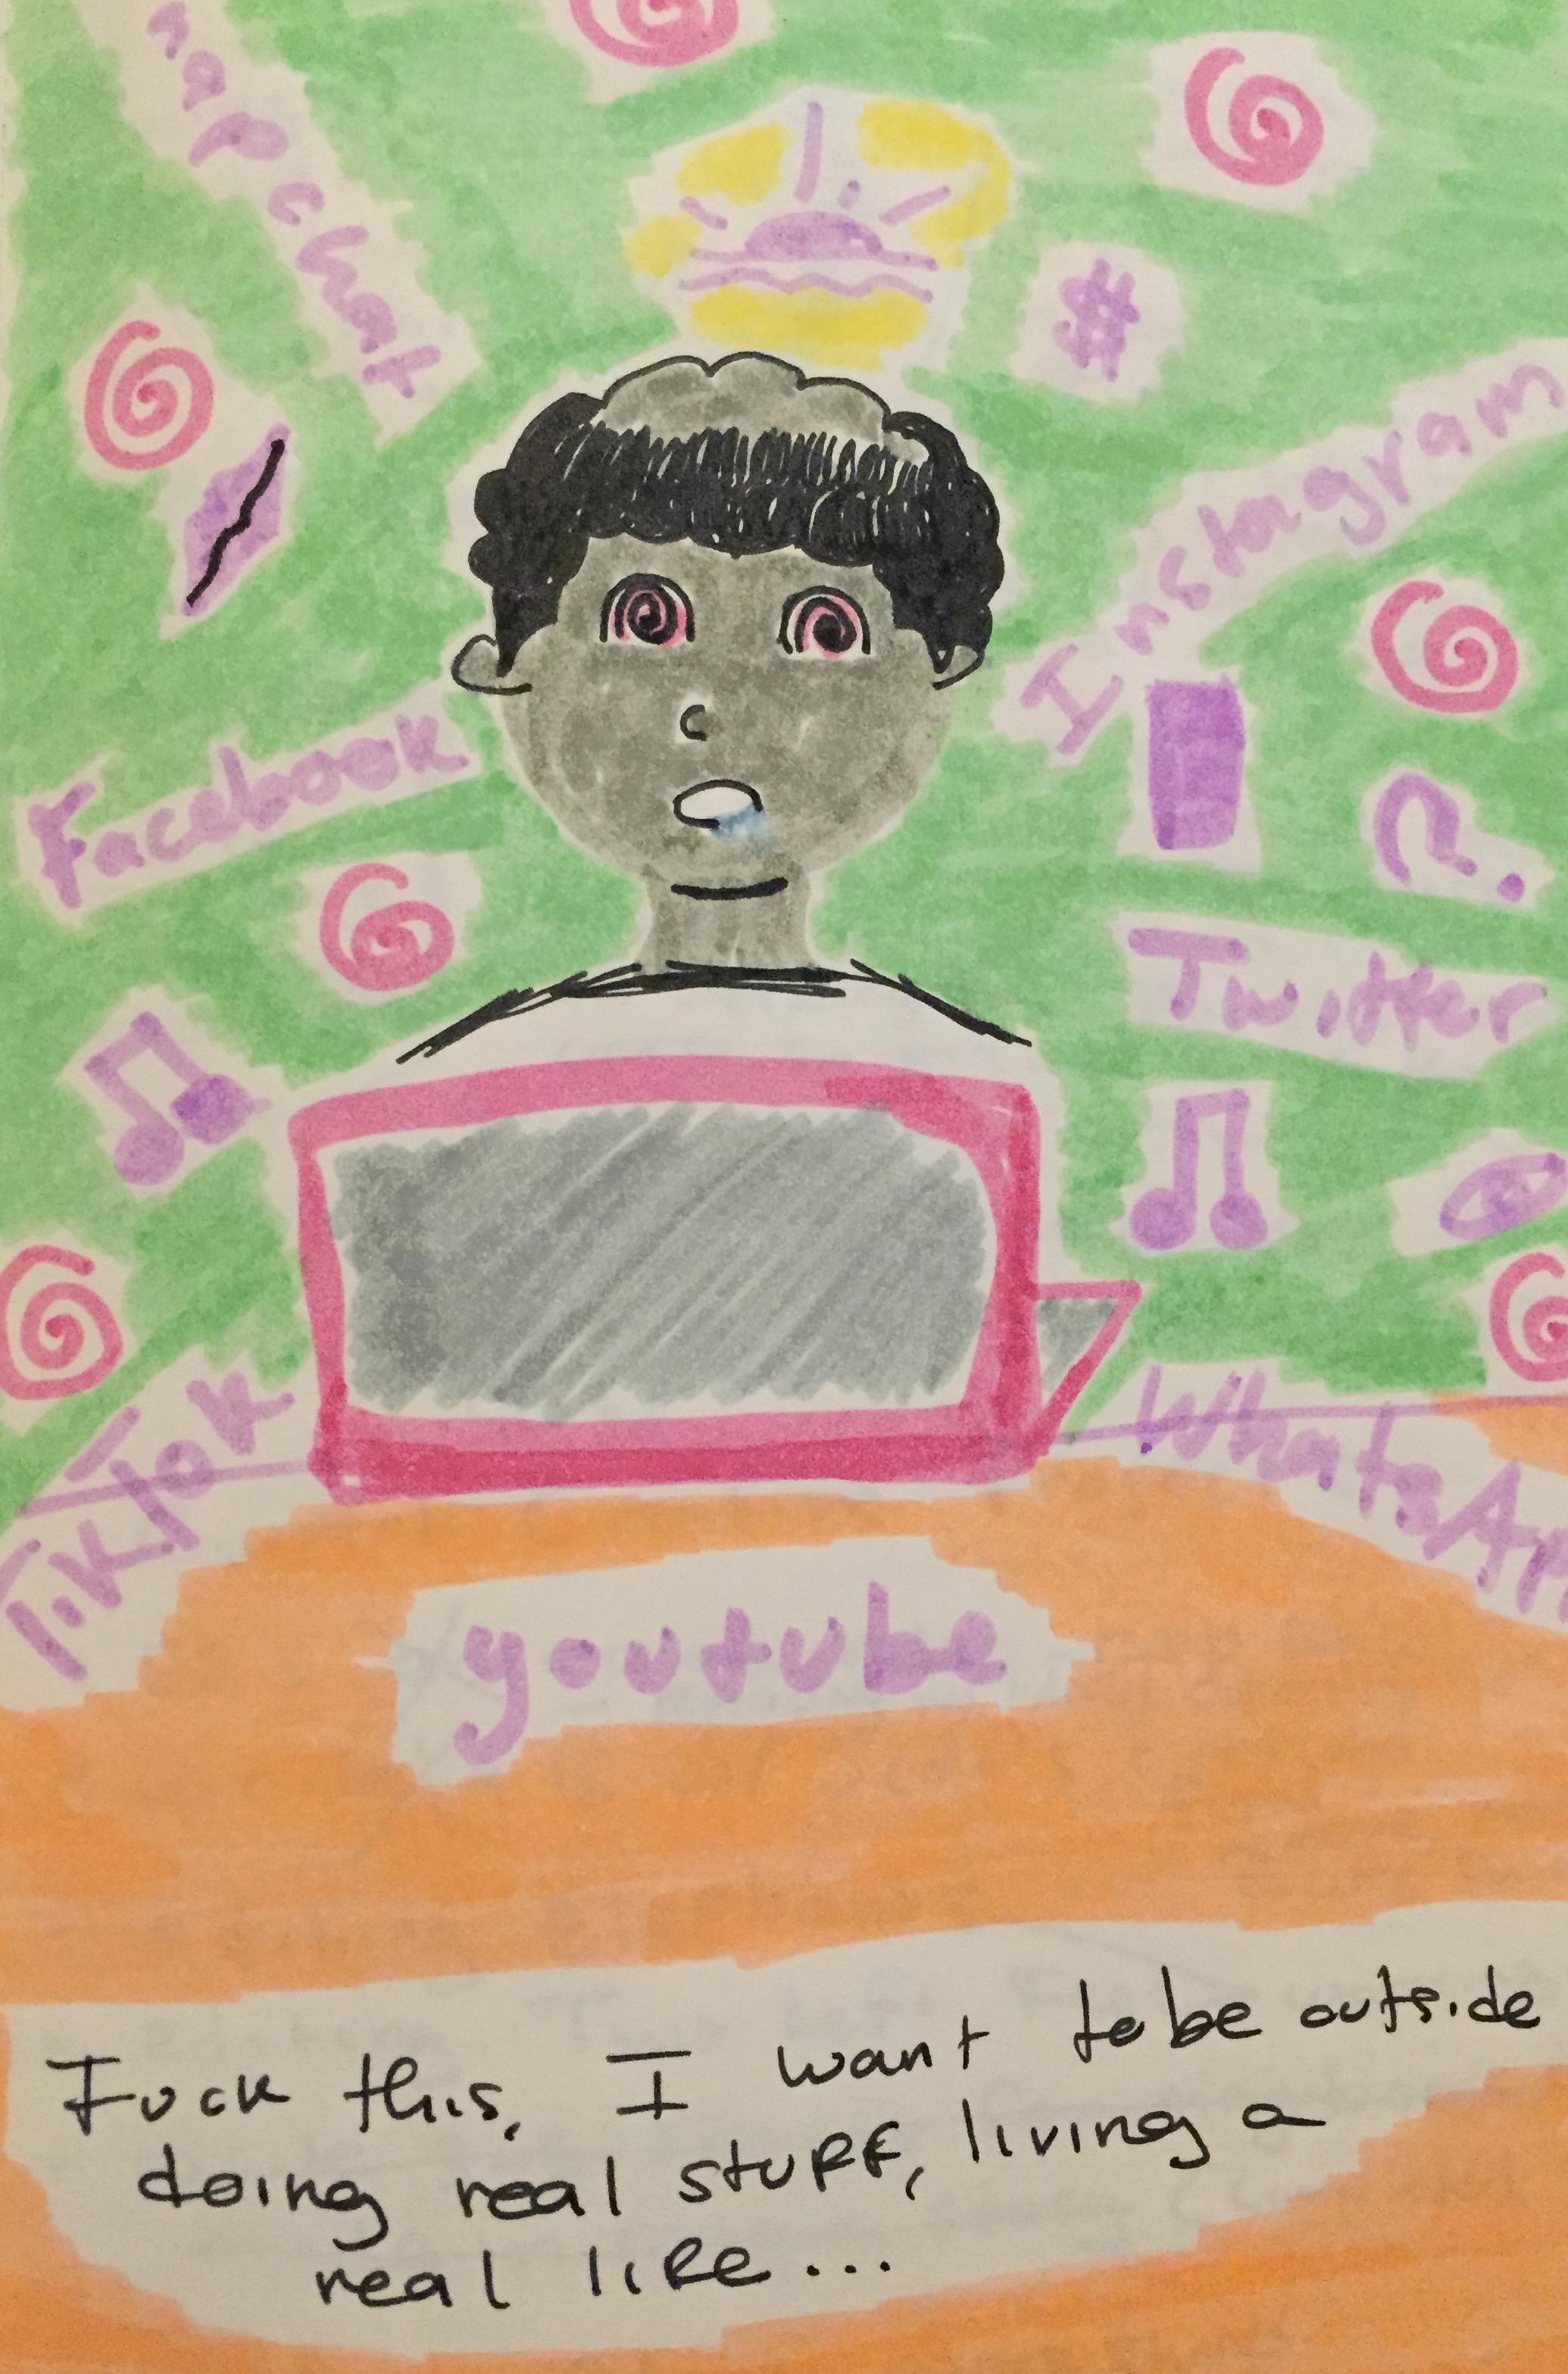 napchat
$
Instagram
Facebook
?
Twitter
TikTok
WhatsAp
youtube
Fuck this, I want to be outside
doing real stuff, living a
real life...